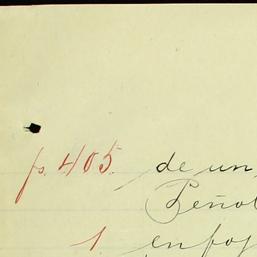 p. 405. de un
Peño
1. en fo